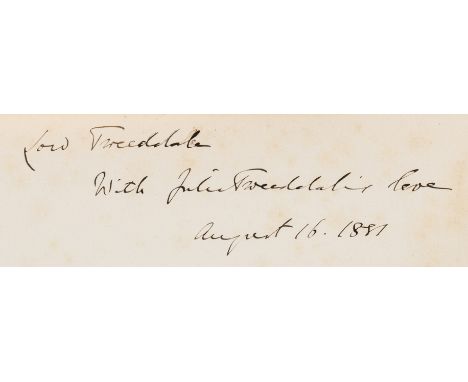 Lord Tweeddale
With Julia Tweeddale's love
August 16. 1881